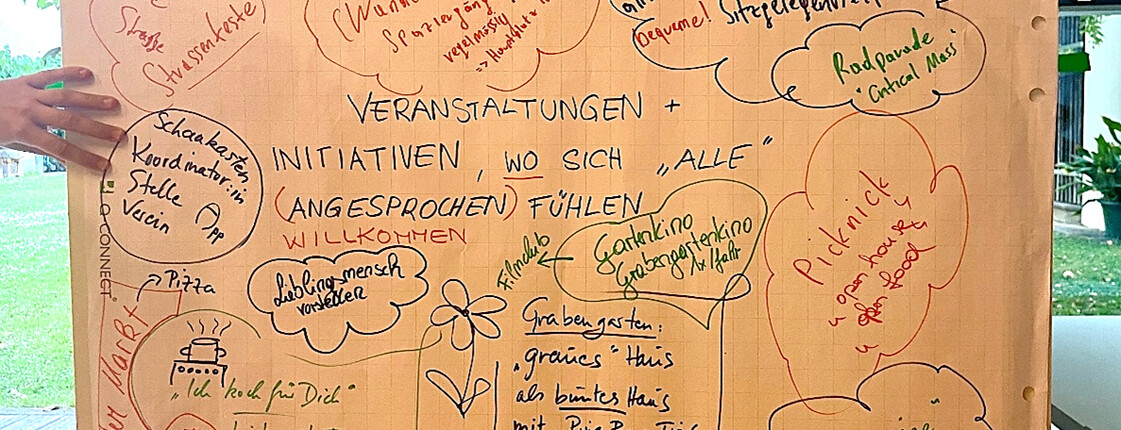 Straße
Strassenfeste
Spaziergäng
regelmässig
=> Hauptplatz
bequeme! Sitzgelegenheit
Radparade
"Critical Mass"
VERANSTALTUNGEN +
INITIATIVEN, WO SICH „ALLE"
(ANGESPROCHEN) FÜHLEN
WILLKOMMEN
Schaukasten
Koordinator:in
Stelle
Verein App
CONNECT
Pizza
Markt
Lieblingsmensch
vorstellen
Filmclub
Gartenkino
Grabengartenkino
1x/Jahr
Picknick
"open house"
" open food
Grabengarten:
„graues" Haus
als buntes Haus
mit
„Ich koch für Dich"